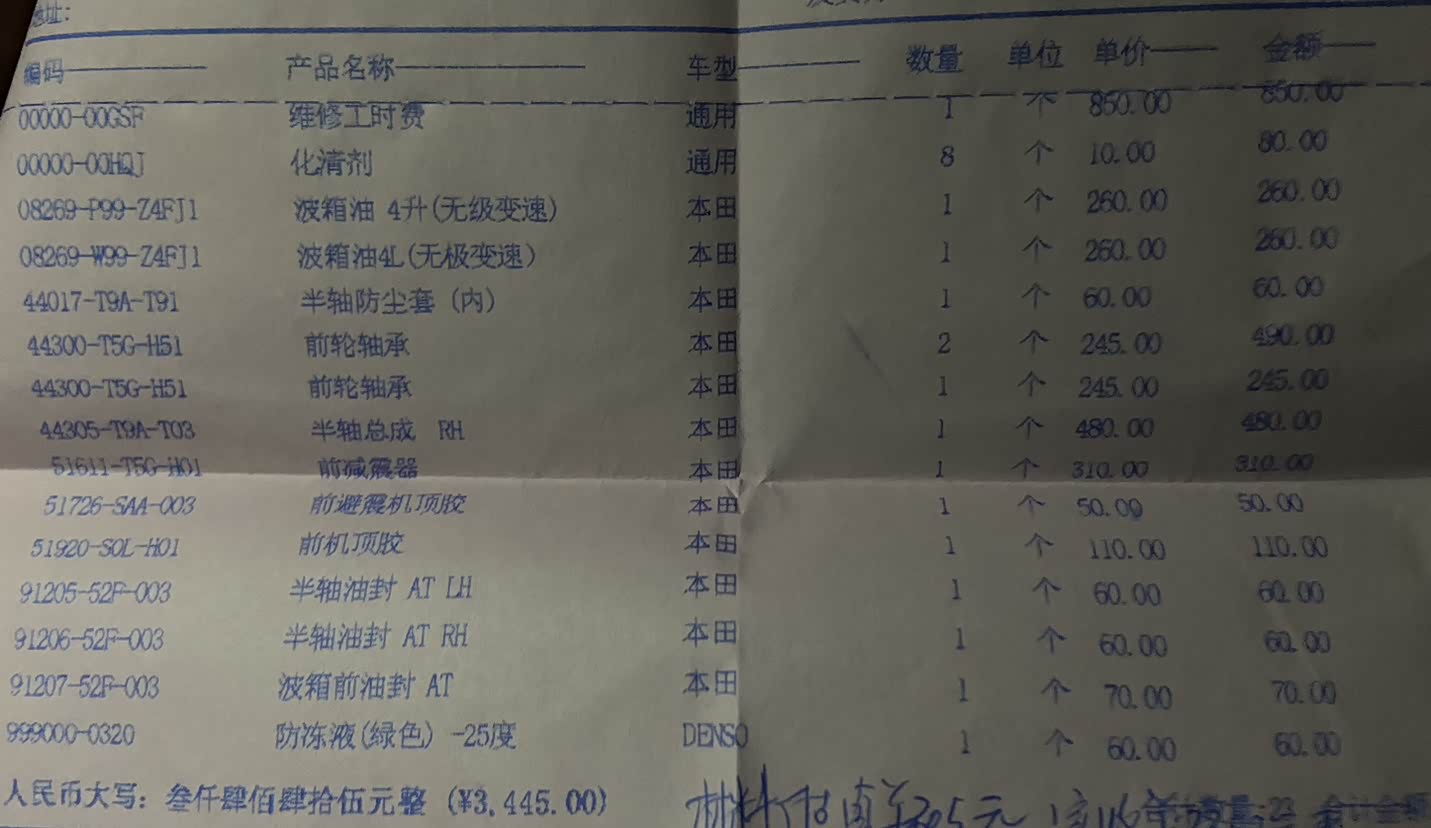 地址:
编码 产品名称 车型 数量 单位 单价 金额
00000-00GSF 维修工时费 通用 1 个 850.00 850.00
00000-00HQJ 化清剂 通用 8 个 10.00 80.00
08269-P99-Z4FJ1 波箱油 4升(无级变速) 本田 1 个 260.00 260.00
08269-W99-Z4FJ1 波箱油4L(无极变速) 本田 1 个 260.00 260.00
44017-T9A-T91 半轴防尘套 (内) 本田 1 个 60.00 60.00
44300-T5G-H51 前轮轴承 本田 2 个 245.00 490.00
44300-T5G-H51 前轮轴承 本田 1 个 245.00 245.00
44305-T9A-T03 半轴总成 RH 本田 1 个 480.00 480.00
51611-T5G-H01 前减震器 本田 1 个 310.00 310.00
51726-SAA-003 前避震机顶胶 本田 1 个 50.00 50.00
51920-SOL-H01 前机顶胶 本田 1 个 110.00 110.00
91205-52P-003 半轴油封 AT LH 本田 1 个 60.00 60.00
91206-52P-003 半轴油封 AT RH 本田 1 个 60.00 60.00
91207-52P-003 波箱前油封 AT 本田 1 个 70.00 70.00
999000-0320 防冻液(绿色) -25度 DENSO 1 个 60.00 60.00
人民币大写: 叁仟肆佰肆拾伍元整 (¥3,445.00) 材料 元 数量:23 合计金额